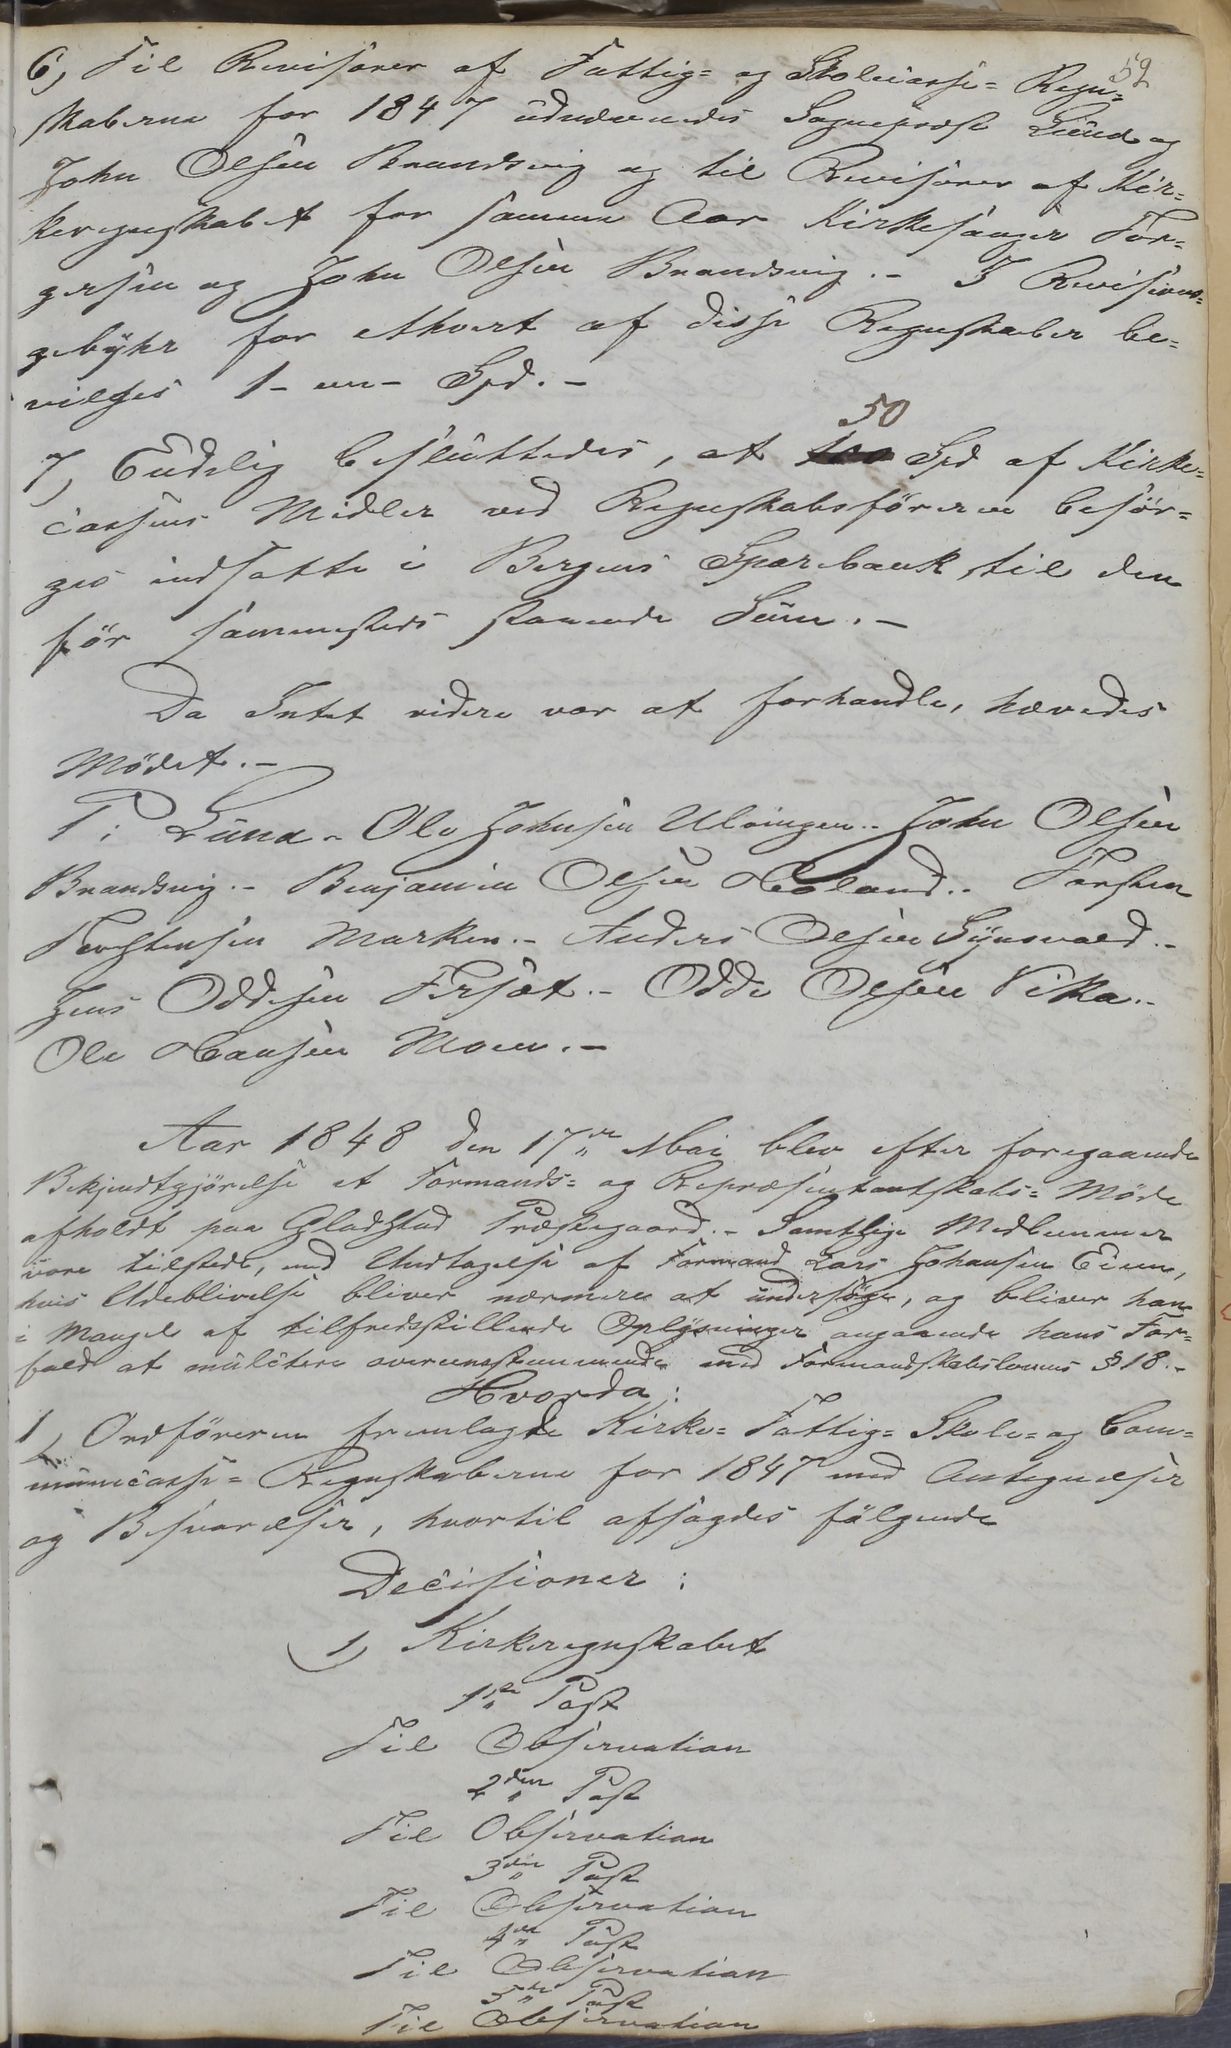 52
6, Til Revisorer af Fattig= og Skolecasse= Regn=
skaberne for 1847 udnævnedes Sognepræst Lund og
John Olsen Brandsvig og til Revisorer af Kir=
keregnskabet for samme Aar Kirkesanger Tor=
gersen og John Olsen Brandsvig.- I Revisions=
gebÿhr for ethvert af disse Regnskaber be=
vilges 1- en- Spd.-
50
7, Endelig besluttedes, at 100 Spd af Kirke=
cassens Midler ved Regnskabsföreren besör=
ges indsatte i Bergens Sparebank til den
för sammesteds staaende Sum.-
Da Intet videre var at forhandle, hævedes
Mödet.-
T: Lund.- Ole Johnsen Ulvingen.- John Olsen
Brandsvig.- Benjamin Olsen Høland.- Torsten
Torstensen Marken.- Anders Olsen
Jens Oddesen Forsæt.- Odde Olsen Vika.-
Ole Hansen Moen.-
Aar 1848 den 17de Mai blev efter foregaaende
Bekjendtgjörelse et Formands= og Repræsentantskabs= Möde
afholdt paa Gladstad Præstegaard.- Samtlige Medlemmer
vare tilstede, med Undtagelse af Formand Lars Johansen Eien,
hvis Udeblivelse bliver nærmere at undersöge, og bliver han
i Mangel af tilfredsstillende Oplÿsninger angaaende hans For=
fald at mulctere overeensstemmende med Formandskabslovens § 18.-
Hvorda:
1, Ordföreren fremlagde Kirke= Fattig= Skole= og Com=
municasse= Regnskaberne for 1847 med Antegnelser
og Besvarelser, hvortil afsagdes fölgende
Decisioner:
1, Kirkeregnskabet
1ste Post
Til Observation
2den Post
Til Observation
3die Post
Til Observation
4de Post
Til Observation
5te Post
Til Observation